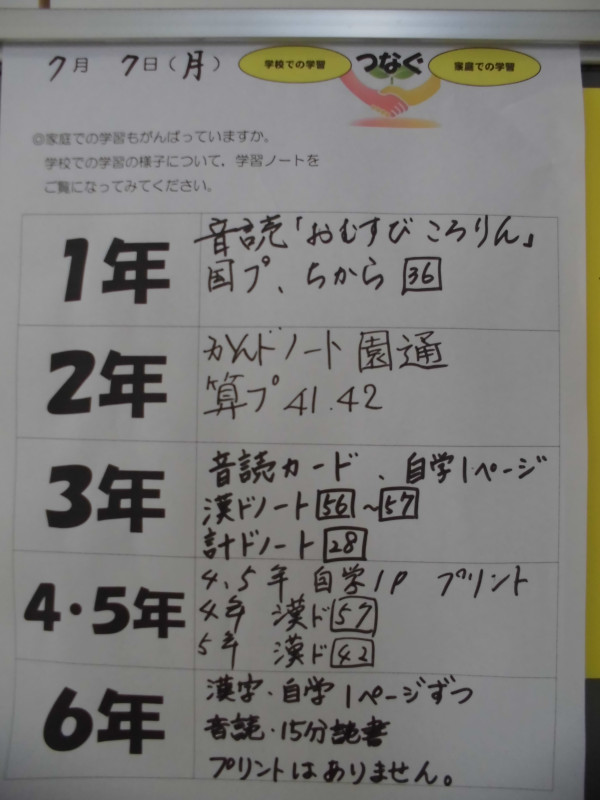 7月 7日(月)
学校での学習 つなぐ 家庭での学習
◎家庭での学習もがんばっていますか。
学校での学習の様子について，学習ノートを
ご覧になってみてください。
1年
音読「おむすびころりん」
国プ、ちから 36
2年
かんドノート 園通
算プ 41.42
3年
音読カード、自学1ページ
漢ドノート 56~57
計ドノート 28
4・5年
4、5年 自学1P プリント
4年 漢ド 57
5年 漢ド 42
6年
漢字・自学1ページずつ
音読・15分読書
プリントはありません。